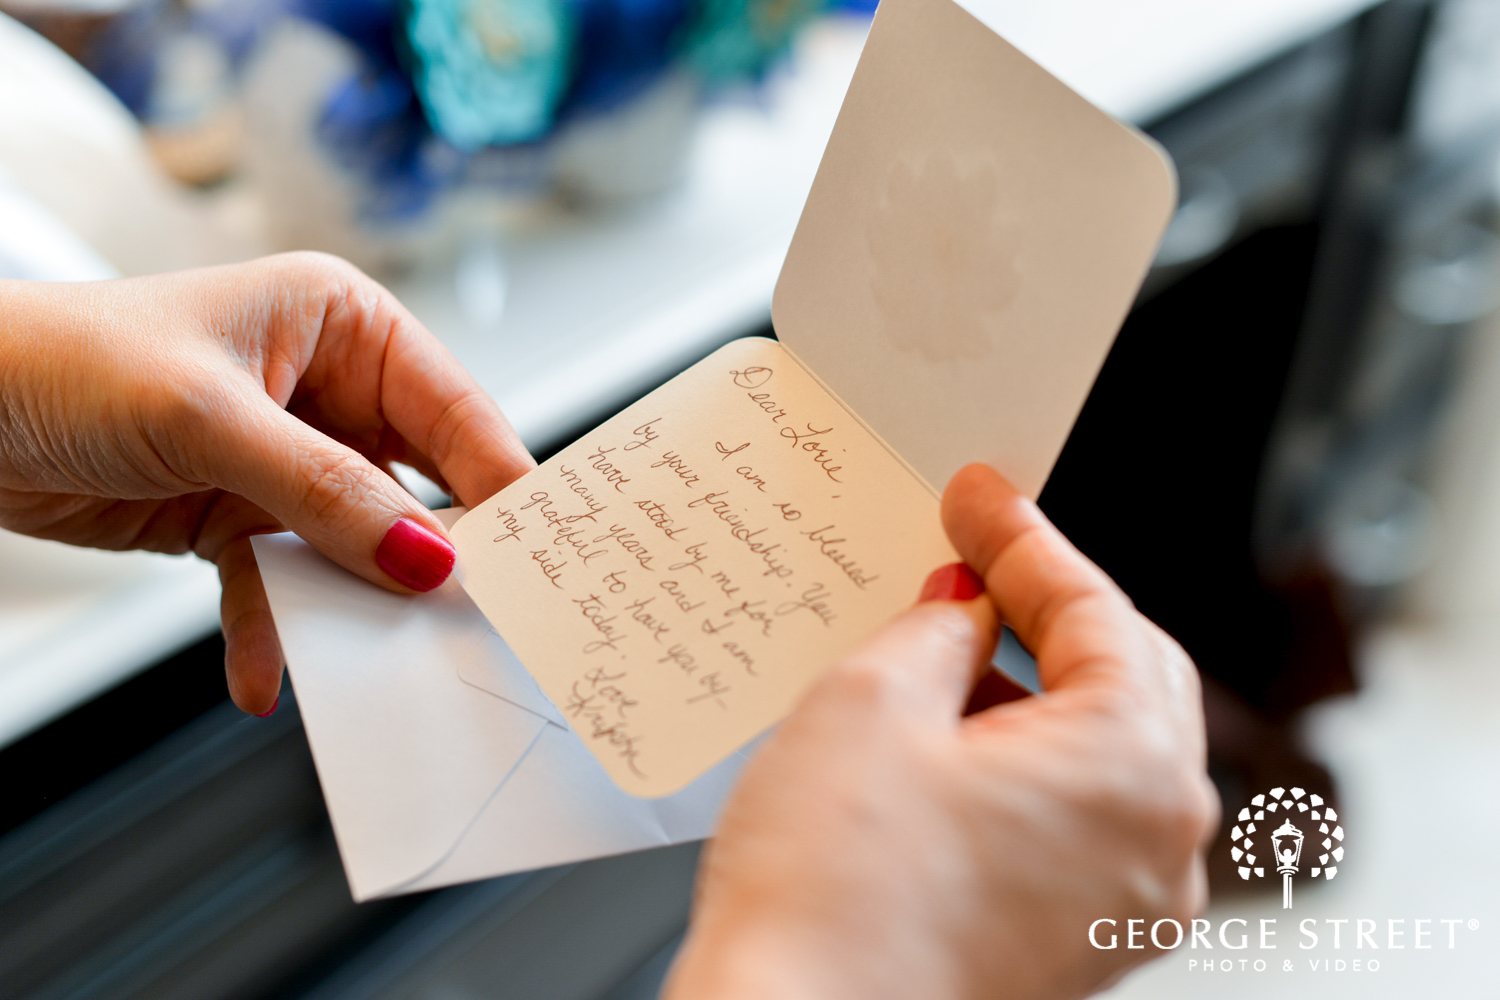 Dear Lorie,
I am so blessed
by your friendship. You
have stood by me for
many years and I am
grateful to have you by
my side today.
Love
Kristen
GEORGE STREET®
PHOTO & VIDEO